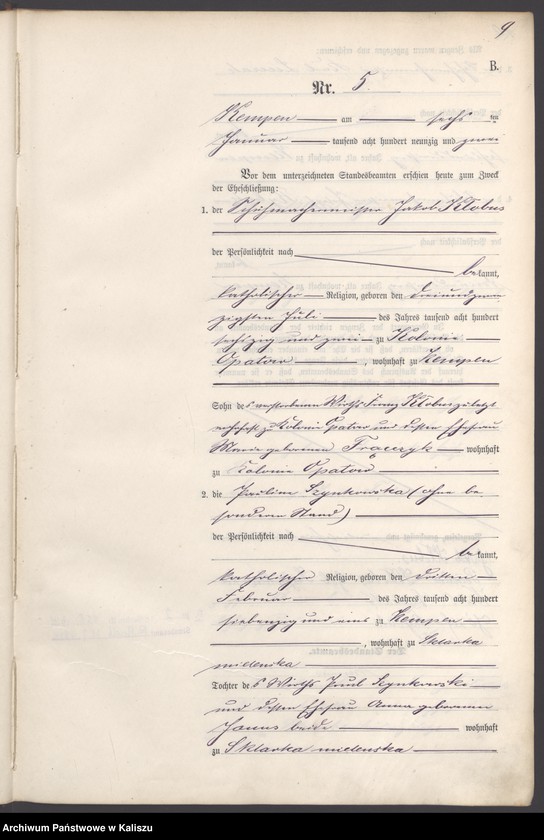 9
B.
Nr. 5
Kempen am sechs ten
Januar tausend acht hundert neunzig und zwei
Vor dem unterzeichneten Standesbeamten erschien heute zum Zweck
der Eheschließung:
1. der Schuhmachermeister Jakob Klobus
der Persönlichkeit nach
be kannt,
katholischer Religion, geboren den dreiundzwan
zigsten Juli des Jahres tausend acht hundert
sechszig und zwei zu Kolonie
Opatow, wohnhaft zu Kempen
Sohn des verstorbenen Wirths Franz Klobus zuletzt
wohnhaft zu Kolonie Opatow und dessen Ehefrau
Marie geborenen Frączyk wohnhaft
zu Kolonie Opatow
2. die Pauline Szynkowska (ohne be
sonderen Stand)
der Persönlichkeit nach
be kannt,
katholischer Religion, geboren den dritten
Februar des Jahres tausend acht hundert
siebenzig und eins zu Kempen
, wohnhaft zu Sklarka
mielenska
Tochter des Wirths Paul Szynkowski
und dessen Ehefrau Anna geborenen
Janus beide wohnhaft
zu Sklarka mielenska
Der Standesbeamte.
Archiwum Państwowe w Kaliszu